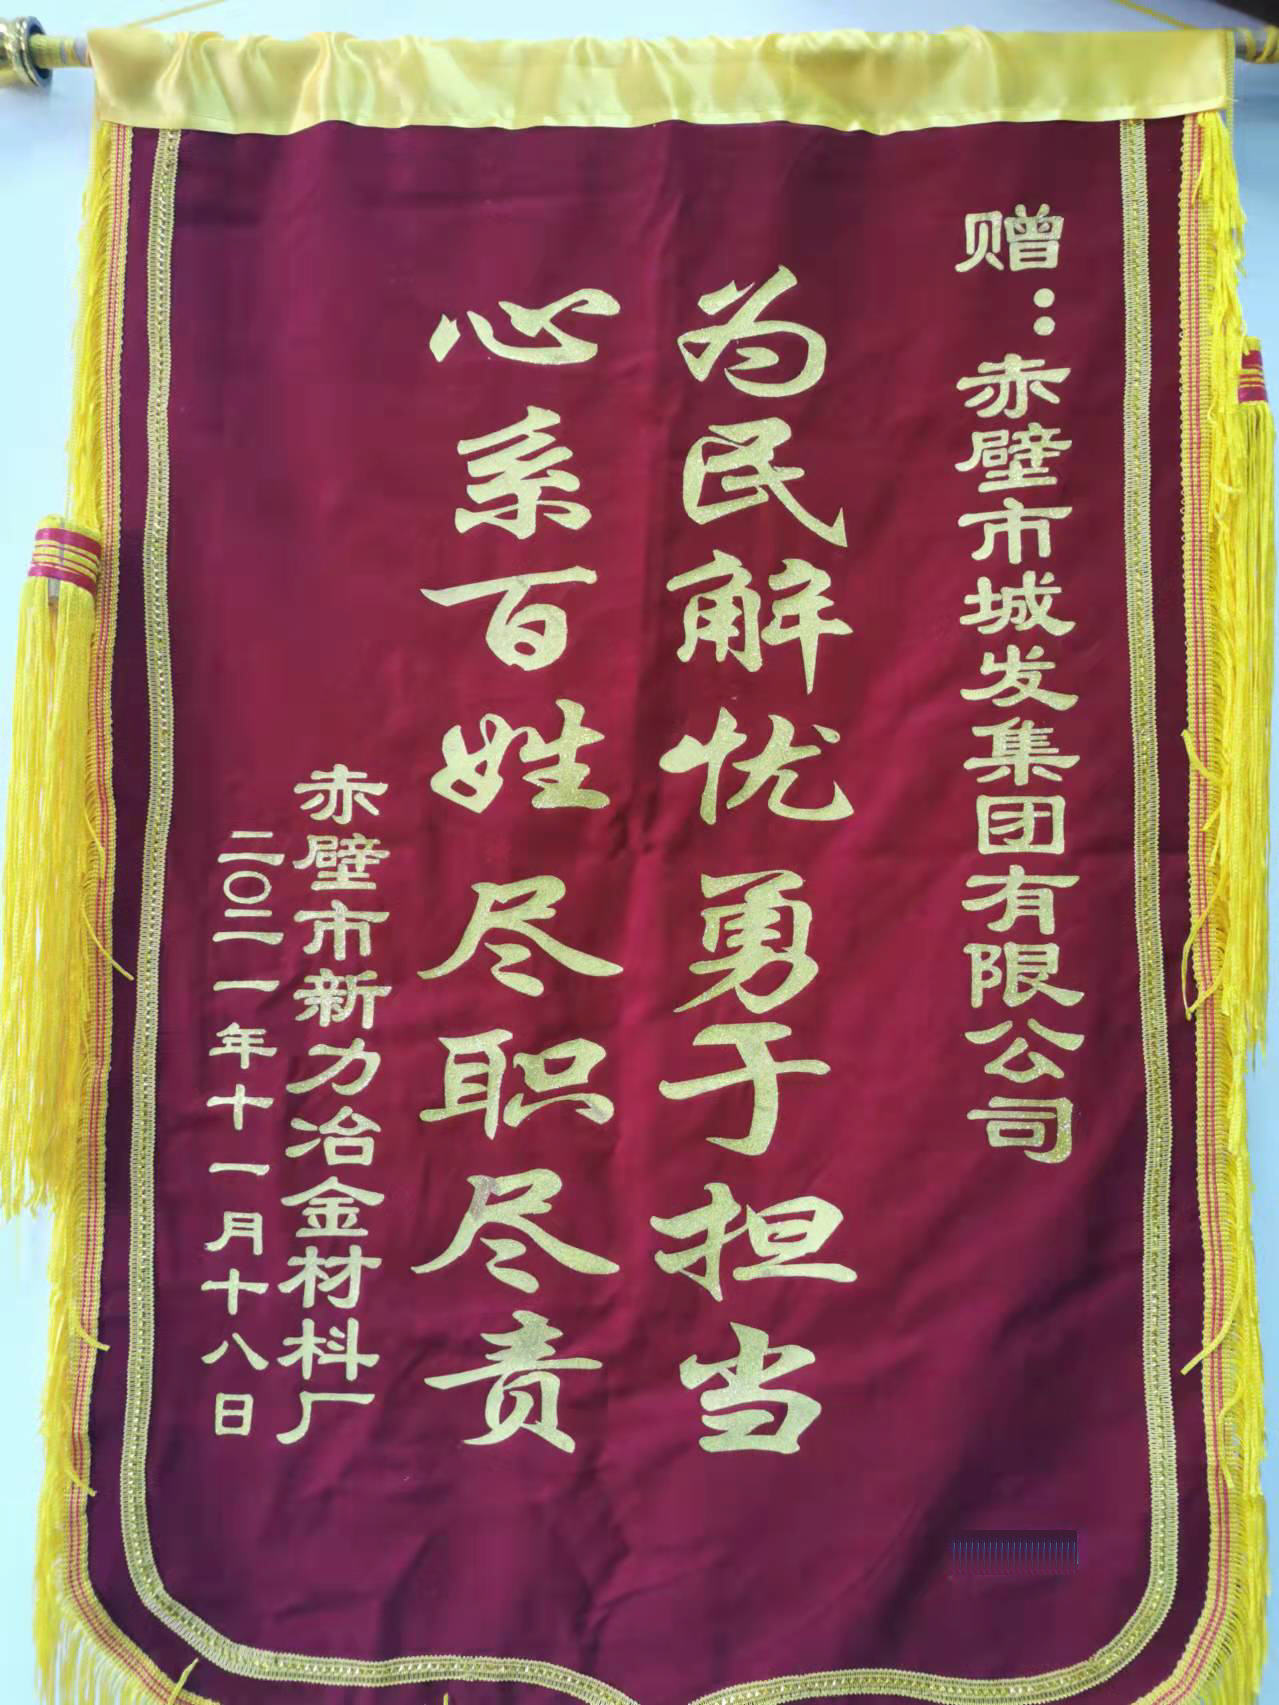 赠：赤壁市城发集团有限公司
为民解忧勇于担当
心系百姓尽职尽责
赤壁市新力冶金材料厂
二〇二一年十一月十八日